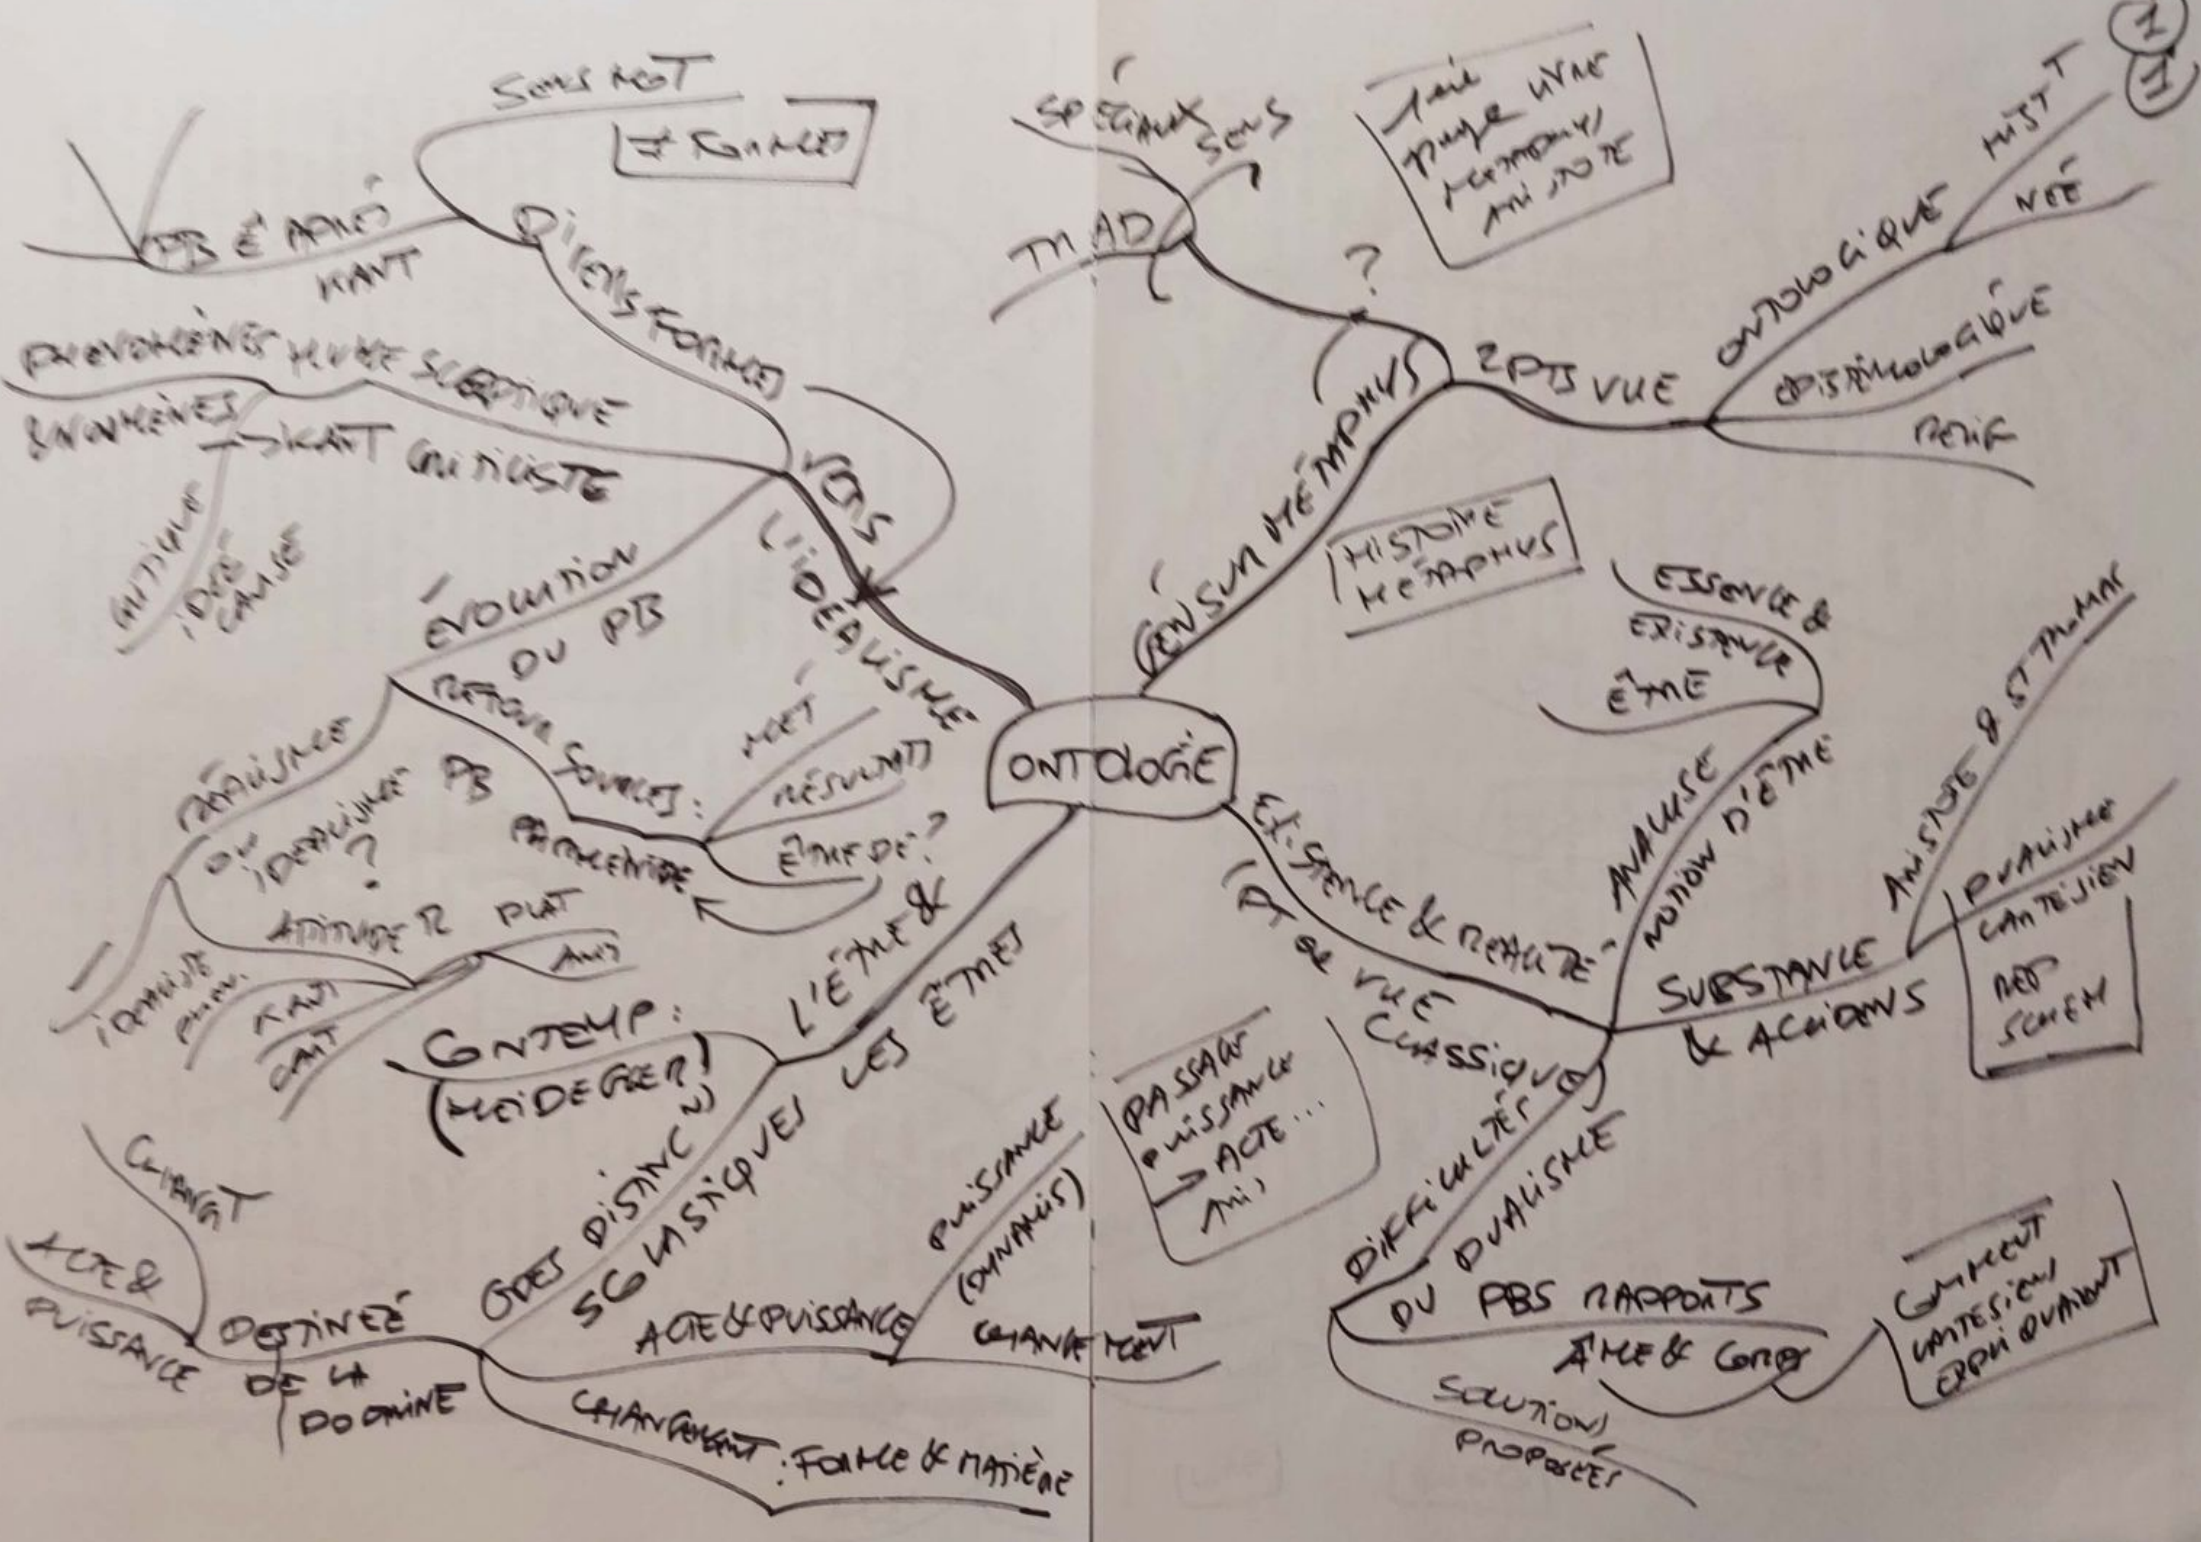 ONTOLOGIE
GÉN SUR MÉTAPHYS
?
SPÉCIAUX
SENS
TRAD
1ère
page livre
METAPHYS
ARISTOTE
2 PTS VUE
ONTOLOGIQUE
HIST
NÉÉ
EPISTÉMOLOGIQUE
1
1
HISTOIRE
MÉTAPHYS
EXISTENCE & RÉALITÉ
(PT de VUE
CLASSIQUE)
ANALYSE
NOTION D'ÊTRE
ESSENCE &
EXISTENCE
ÊTRE
SUBSTANCE
& ACCIDENS
ARISTOTE & ST THOMAS
DUALISME
CARTÉSIEN
REP
SCHEM
DIFFICULTÉS
DU DUALISME
PBS RAPPORTS
ÂME & CORPS
COMMENT
CARTESIENS
EXPLIQUAIENT
SOLUTIONS
PROPOSÉES
L'ÊTRE &
LES ÊTRES
CONTEMP:
(HEIDEGGER)
GDES DISTINC
SCOLASTIQUES
ACTE & PUISSANCE
PUISSANCE
(DYNAMIS)
CHANGEMENT
PASSAGE
PUISSANCE
→ ACTE...
Aris
CHANGEMENT: FORME & MATIÈRE
DESTINÉE
DE LA
DOCTRINE
CHANGT
ACTE &
PUISSANCE
VERS
L'IDÉALISME
DIVERS FORMES
SENS MOT
≠ FORMES
PB É APRÈS
KANT
HUME SCEPTIQUE
→ KANT CRITICISTE
PHÉNOMÈNES
& NOUMÈNES
CRITIQUE
IDÉE
CAUSE
ÉVOLUTION
DU PB
RETOUR SOURCES:
PB
PARMENIDE
MÉT
RÉSULTATS
ÊTRE DE?
RÉALISME
OU
IDÉALISME
?
ATTITUDE R
PLAT
ARIS
KANT
IDEALISTE
PHEN.